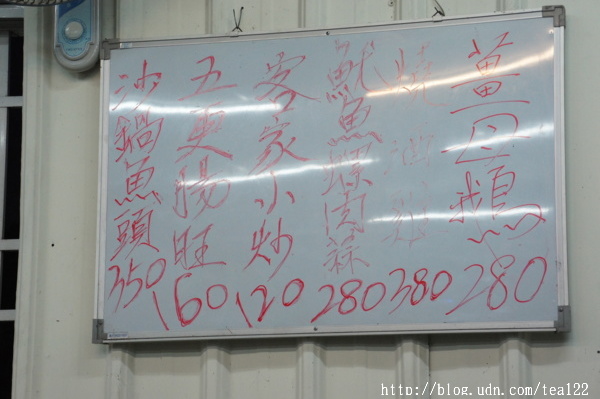 薑母鵝 280
燒酒雞 380
魷魚螺肉蒜 280
客家小炒 120
五更腸旺 160
沙鍋魚頭 350
http://blog.udn.com/tea122